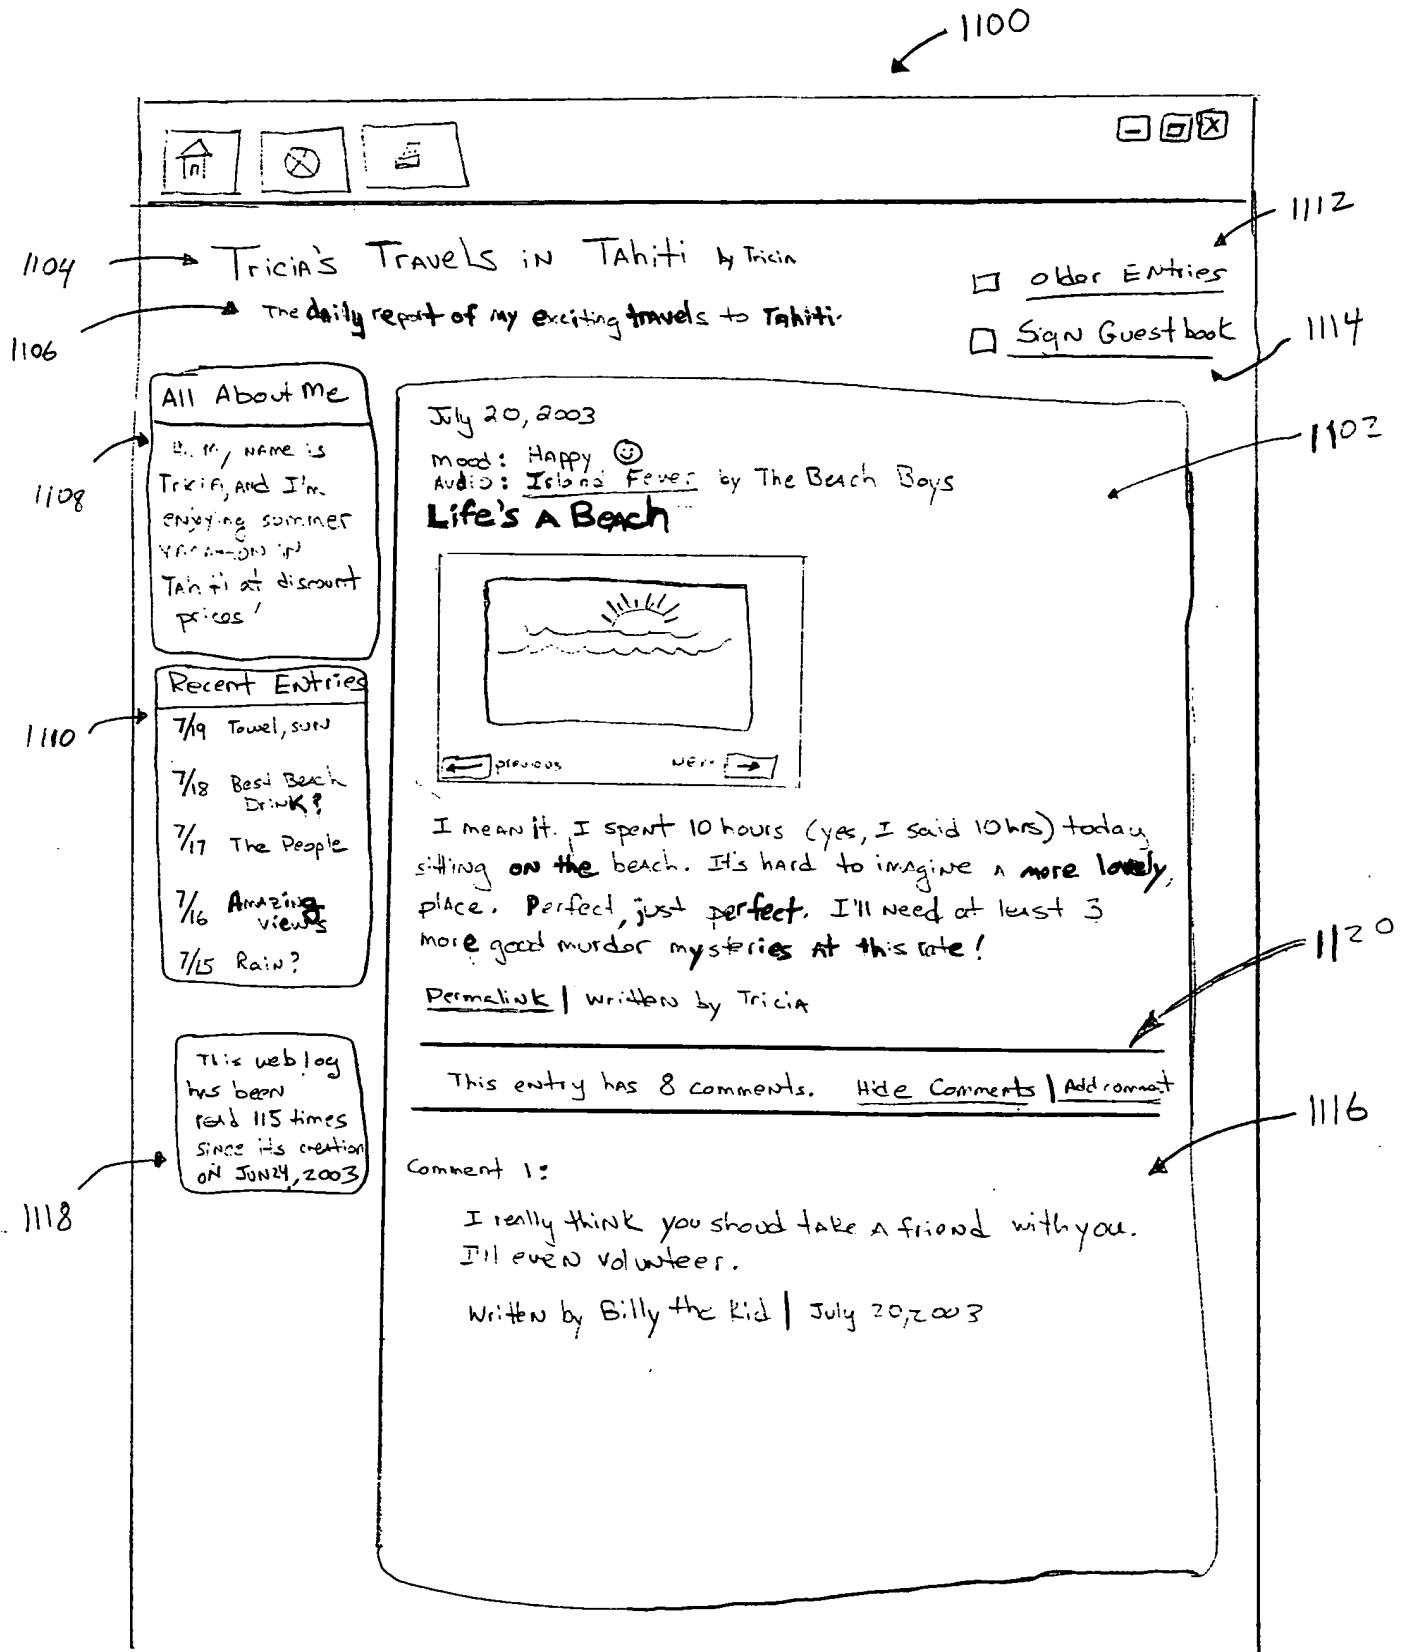 1100
1112
1104
Tricia's Travels in Tahiti by Tricia
Older Entries
The daily report of my exciting travels to Tahiti.
1106
Sign Guestbook
1114
All About Me
my name is
Tricia, and I'm
enjoying summer
vacation in
Tahiti at discount
prices!
1108
Recent Entries
7/19 Towel, sun
7/18 Best Beach
Drink?
7/17 The People
7/16 Amazing
views
7/15 Rain?
1110
This weblog
has been
read 115 times
since its creation
on Jun 24, 2003
1118
July 20, 2003
1102
Mood: Happy
Audio: Island Fever by The Beach Boys
Life's A Beach
previous
I mean it. I spent 10 hours (yes, I said 10 hrs) today
sitting on the beach. It's hard to imagine a more lovely
place. Perfect, just perfect. I'll need at least 3
more good murder mysteries at this rate!
Permalink | written by Tricia
1120
This entry has 8 comments. Hide Comments | Add comment
1116
Comment 1:
I really think you shoud take a friend with you.
I'll even volunteer.
Written by Billy the Kid | July 20, 2003